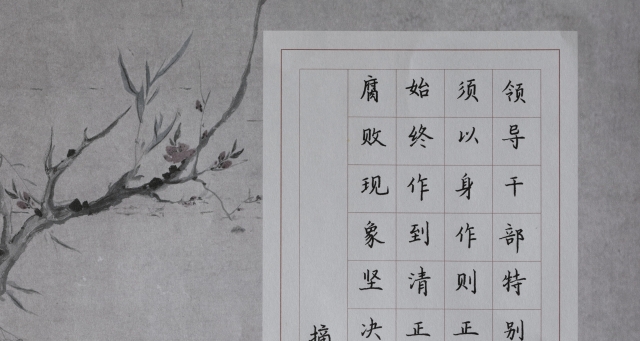 领导干部特别
须以身作则正
始终作到清正
腐败现象坚决
摘